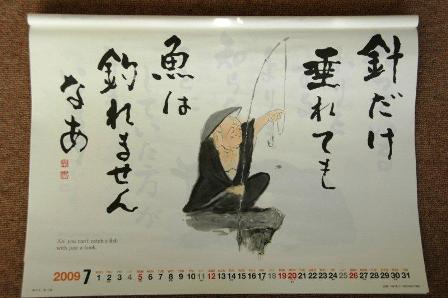 針だけ
垂れても
魚は
釣れません
なあ
No! you can't catch a fish
with just a hook.
2009 7 1 2 3 4 5 6 7 8 9 10 11 12 13 14 15 16 17 18 19 20 21 22 23 24 25 26 27 28 29 30 31